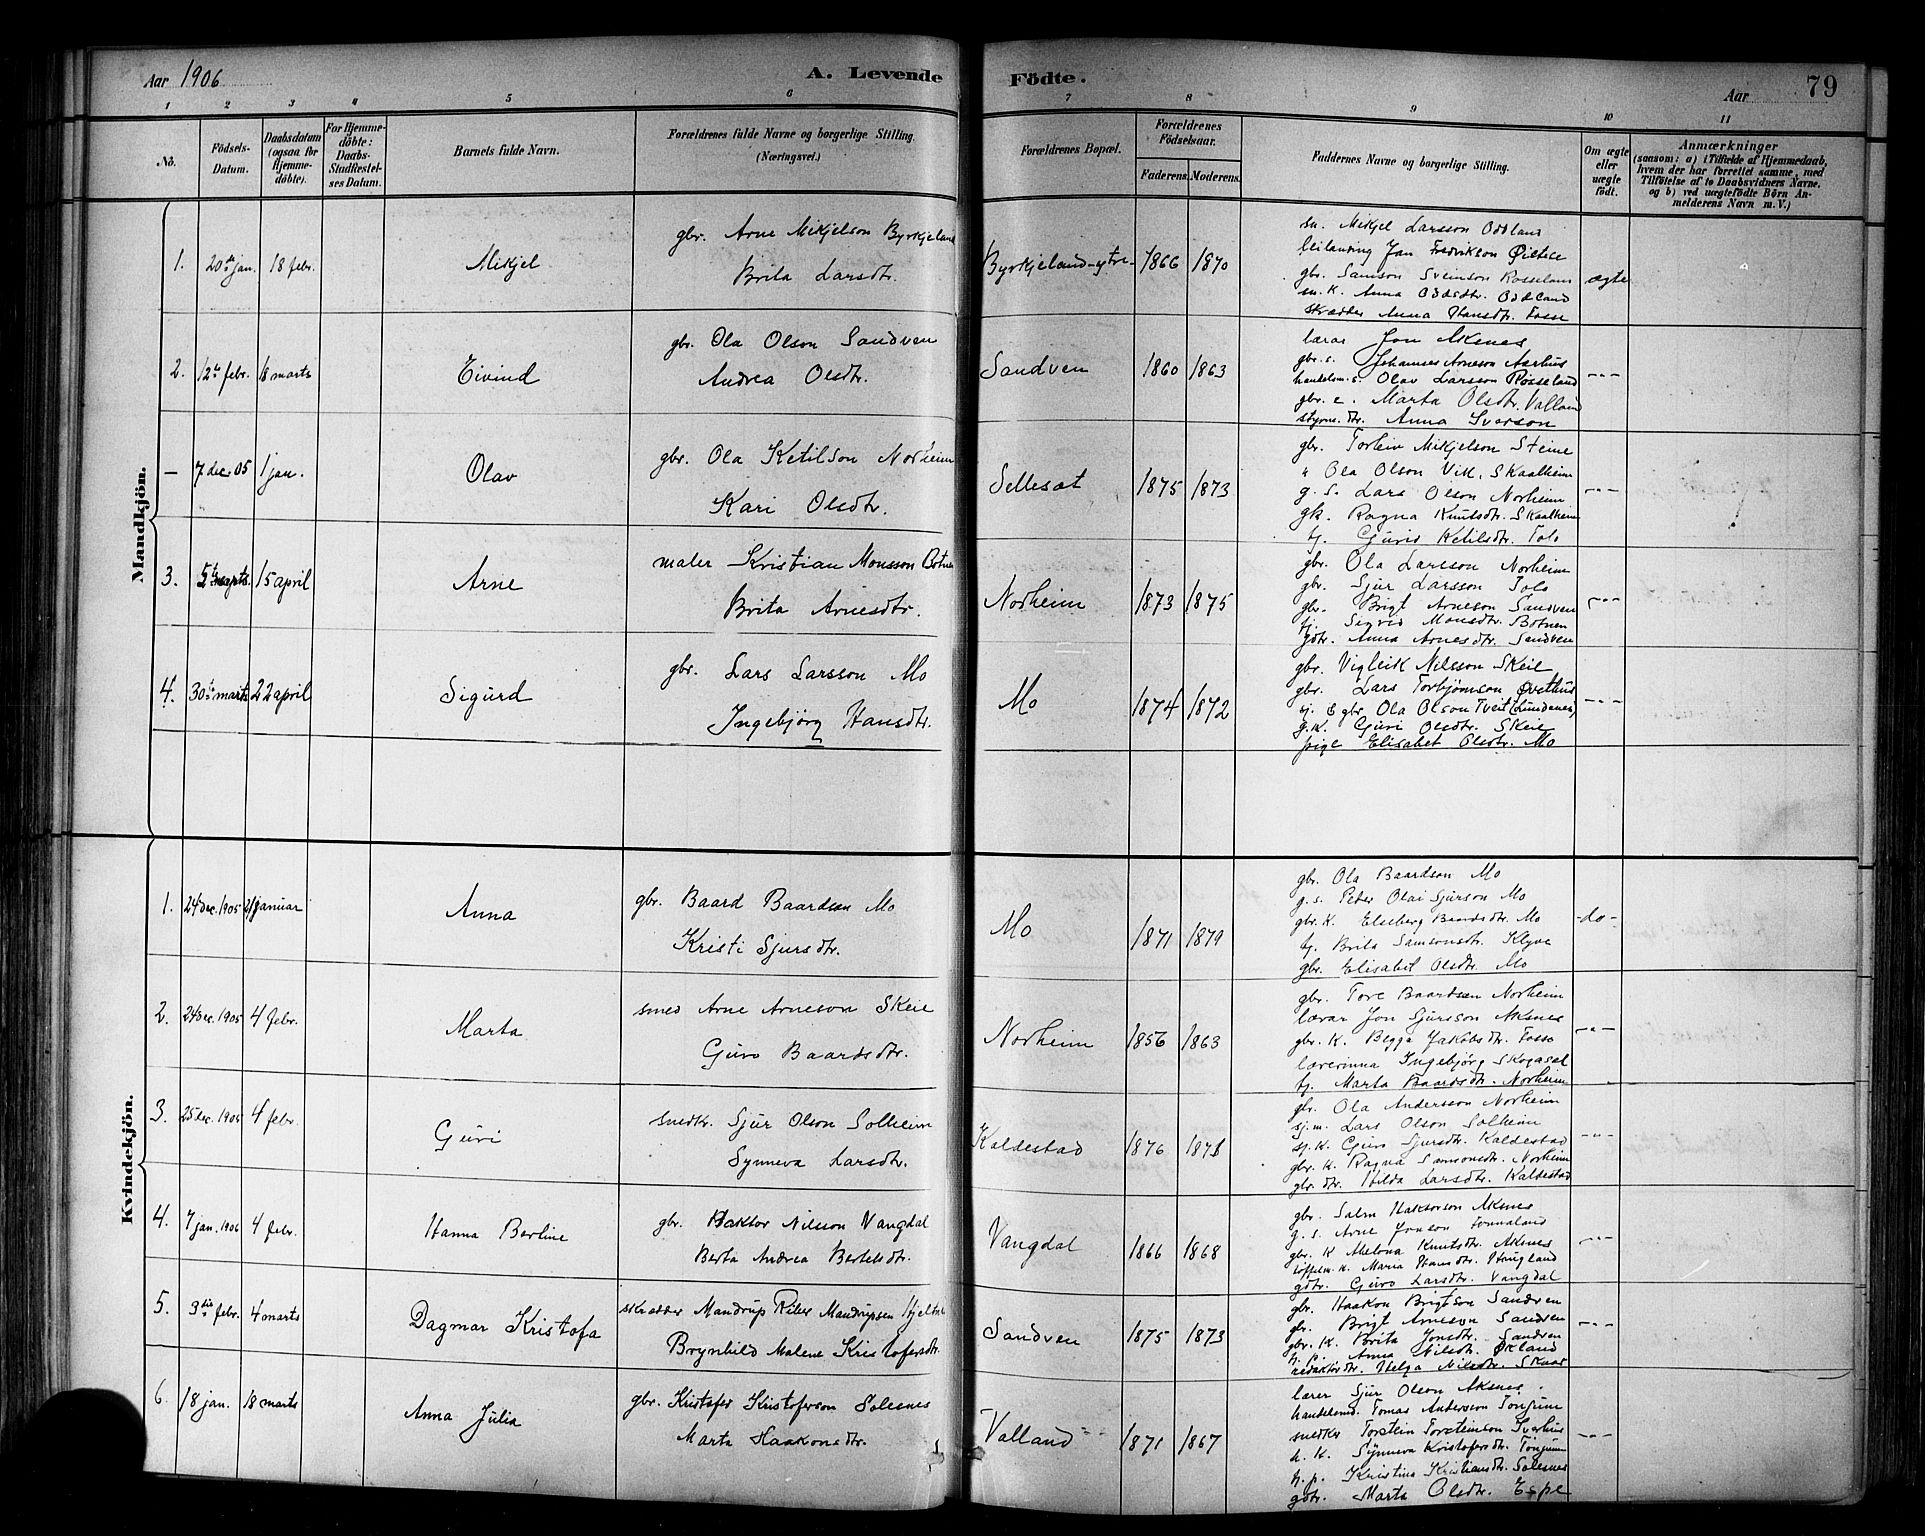 Aar 1906
A. Levende Födte.
Aar
79
1 2 3 4 5 6 7 8 9 10 11
No.
Födsels-Datum.
Daabsdatum (ogsaa for Hjemme-döbte).
For Hjemme-döbte: Daabs-Stadfæstel-ses Datum.
Barnets fulde Navn.
Forældrenes fulde Navne og borgerlige Stilling. (Næringsvei.)
Forældrenes Bopæl.
Forældrenes Födselsaar.
Faderens. Moderens.
Faddernes Navne og borgerlige Stilling.
Om ægte eller uægte födt.
Anmærkninger
(saasom: a) i Tilfælde af Hjemmedaab,
hvem der har forrettet samme, med
Tilföielse af to Daabsvidners Navne.
og b) ved uægtefödte Börn An-
melderens Navn m. V.)
Mandkjön.
1. 20de jan. 18 febr. Mikjel
gbr. Arne Mikjelson Byrkjeland
Brita Larsdtr.
Byrkjeland-ytre- 1866 1870
sn. Mikjel Larsson Oddland
leilænding Jan Fredrikson
gbr. Samson Sveinson Rosseland
sn. k. Anna Oddsdtr. Oddland
skrædder Anna Hansdtr. Fosse
ægte
2. 12te febr. 18 marts Eivind
gbr. Ola Olson Sandven
Andrea Olsdtr.
Sandven 1860 1863
lærar Jon Aksnes
gbr. s. Johannes Arneson Aarhus
handelsm. s. Olav Larsson Rosseland
gbr. e. Marta Olsdtr. Valland
styrm. dtr. Anna Iverson
-"-
- 7 dec. 05 1 jan. Olav
gbr. Ola Ketilson Norheim
Kari Olsdtr.
Sellesæt 1875 1873
gbr. Torbein Mikjelson Steine
" Ola Olson Vik, Skaalheim
g. s. Lars Olson Norheim
gk. Ragna Knutsdtr. Skaalheim
tj. Gurid Ketilsdtr. Tolo
-"-
3. 5te marts 15 april Arne
maler Kristian Monsson Botnen
Brita Arnesdtr.
Norheim 1873 1875
gbr. Ola Larsson Norheim
gbr. Sjur Larsson Tolo
gbr. Brigt Arneson Sandven
tj. Sigrid Monsdtr. Botnen
gdtr. Anna Arnesdtr. Sandven
-"-
4. 30te marts 22 april Sigurd
gbr. Lars Larsson Mo
Ingebjörg Hansdtr.
Mo 1874 1872
gbr. Vigleik Nilsson Skeie
gbr. Lars Torbjörnson Øvsthus
sj. & gbr. Ola Olson Tveit (Lundenes)
g. k. Guri Olsdtr. Skeie
pige Elisabet Olsdtr. Mo
-"-
Kvindekjön.
1. 24 dec. 1905 21 januar Anna
gbr. Baard Baardson Mo
Kristi Sjursdtr.
Mo 1871 1879
gbr. Ola Baardson Mo
g. s. Peter Olai Sjurson Mo
gbr. k. Elseberg Baardsdtr. Mo
tj. Brita Samsonsdtr. Klyve
gbr. Elisabet Olsdtr. Mo
-do-
2. 24 dec. 1905 4 febr. Marta
smed Arne Arneson Skeie
Guro Baardsdtr.
Norheim 1856 1863
gbr. Tore Baardsen Norheim
lærar Jon Sjursson Aksnes
gbr. k. Begga Jakobsdtr. Fosse
lærerinna Ingebjörg Skogasel
tj. Marta Baardsdtr. Norheim
-"-
3. 25 dec. 1905 4 febr. Guri
snedkr. Sjur Olson Solheim
Synneva Larsdtr.
Kaldestad 1876 1878
gbr. Ola Andersson Norheim
sj. m. Lars Olson Solheim
sj. k. Guro Sjursdtr. Kaldestad
gbr. k. Ragna Samsonsdtr. Norheim
gbr. dtr. Hilda Larsdtr. Kaldestad
-"-
4. 7 jan. 1906 4 febr. Hanna Berline
gbr. Haktor Nilsson Vangdal
Berta Andrea Berteldtr.
Vangdal 1866 1868
gbr. Salm Haktorson Aksnes
g. s. Arne Jonson Tonnaland
gbr. k. Knutsdtr. Aksnes
k. Maria Hansdtr. Haugland
gdtr. Guro Larsdtr. Vangdal
-"-
5. 3die febr. 4 marts Dagmar Kristofa
skrædder Mandrup Riber Mandrupsen
Brynhild Malene Kristofersdtr.
Sandven 1875 1873
gbr. Haakon Brigtson Sandven
gbr. Brigt Arneson Sandven
gbr. k. Brita Jonsdtr. Sandven
h. p. Anna Nilsdtr. Økland
redaktördtr. Helga Nilsdtr. Skaar
-"-
6. 18 jan. 18 marts Anna Julia
gbr. Kristofer Kristoferson Solesnes
Marta Haakonsdtr.
Valland 1871 1867
lærer Sjur Olson Aksnes
handelsmd. Tomas Andersson Tonjum
snedker Torstein Torsteinson Iverhus
h. k. Synneva Kristofersdtr. Tonjum
h. p. Kristina Kristiansdtr. Solesnes
gdtr. Marta Olsdtr. Espe
-"-